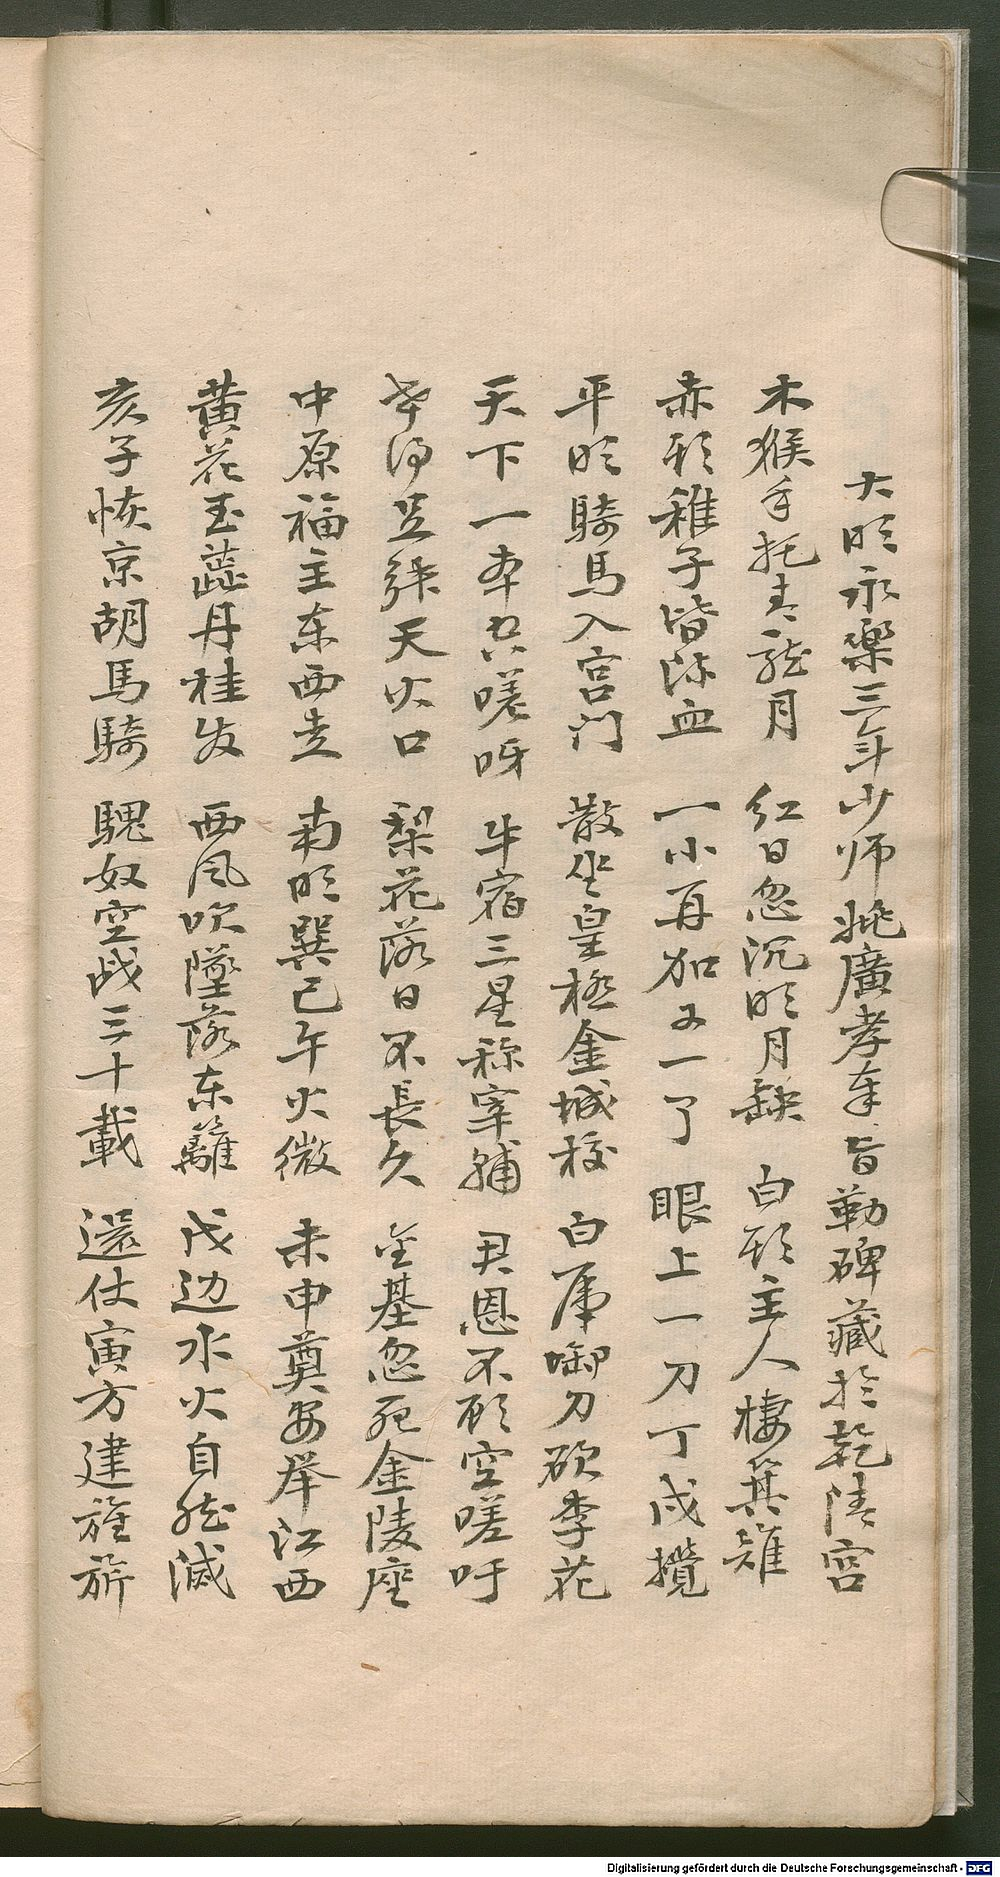 大明永樂三年少师姚廣孝奉旨勒碑藏於乾陵宫
木猴手托青龍月 红日忽沉明月缺 白頭主人棲箕雉
赤頭稚子皆流血 一小再加又一了 眼上一刀丁戊攪
平明騎馬入宫门 散坐皇極金城校 白虎啣刀砍李花
天下一本只嗟呀 牛宿三星称宰辅 君恩不顧空嗟吁
天火口 梨花落日不長久 基忽死金陵座
中原福主东西走 南明巽已午火微 未申奠安举江西
黄花玉蕊丹桂发 西风吹墜落东籬 戊边水火自然滅
亥子恢京胡馬騎 騩奴空战三十載 還仗寅方建旌旂
Digitalisierung gefördert durch die Deutsche Forschungsgemeinschaft - DFG